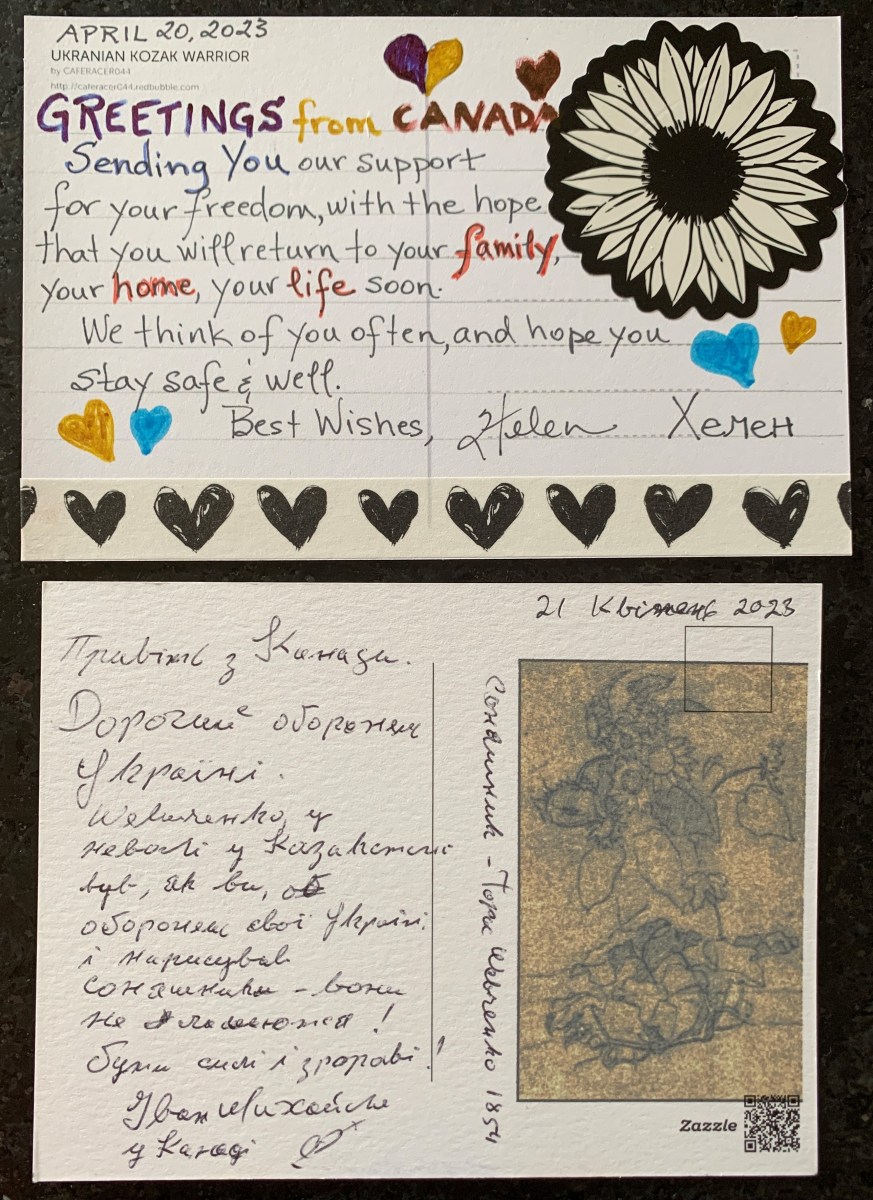 APRIL 20, 2023
UKRANIAN KOZAK WARRIOR
by CAFERACER044
http://caferacer044.redbubble.com
GREETINGS from CANADA
Sending You our support
for your freedom, with the hope
that you will return to your family,
your home, your life soon.
We think of you often, and hope you
stay safe & well.
Best Wishes, Helen Хелен
21 Квітень 2023
Привіт з Канади.
Дорогий оборонец
Україні.
Шевченко, у
неволі у Казакстані
був, як ви,
оборонец свої Україні
і нарисував
сонашники - вони
не !
будти силі і здорові!
Іван
у Канаді
Сонашник - Торас Шевченко 1854
Zazzle